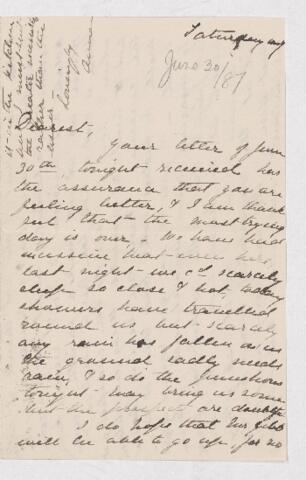 Saturday
June 30/87
85° in the kitchen
but I must send
the greater
rather than the
lesser.
Lovingly
Anna
Dearest,
Your letter of June
30th, tonight received has
the assurance that you are
feeling better, & I am thank
ful that the most trying
day is over. We have had
heat even here,
last night we cd scarcely
sleep so close & hot, today
showers have travelled
round us but scarcely
any rain has fallen
the ground sadly needs
rain, & so do the
tonight may bring us some
but the prospects are doubtful
I do hope that Mr
will be able to go up, for no